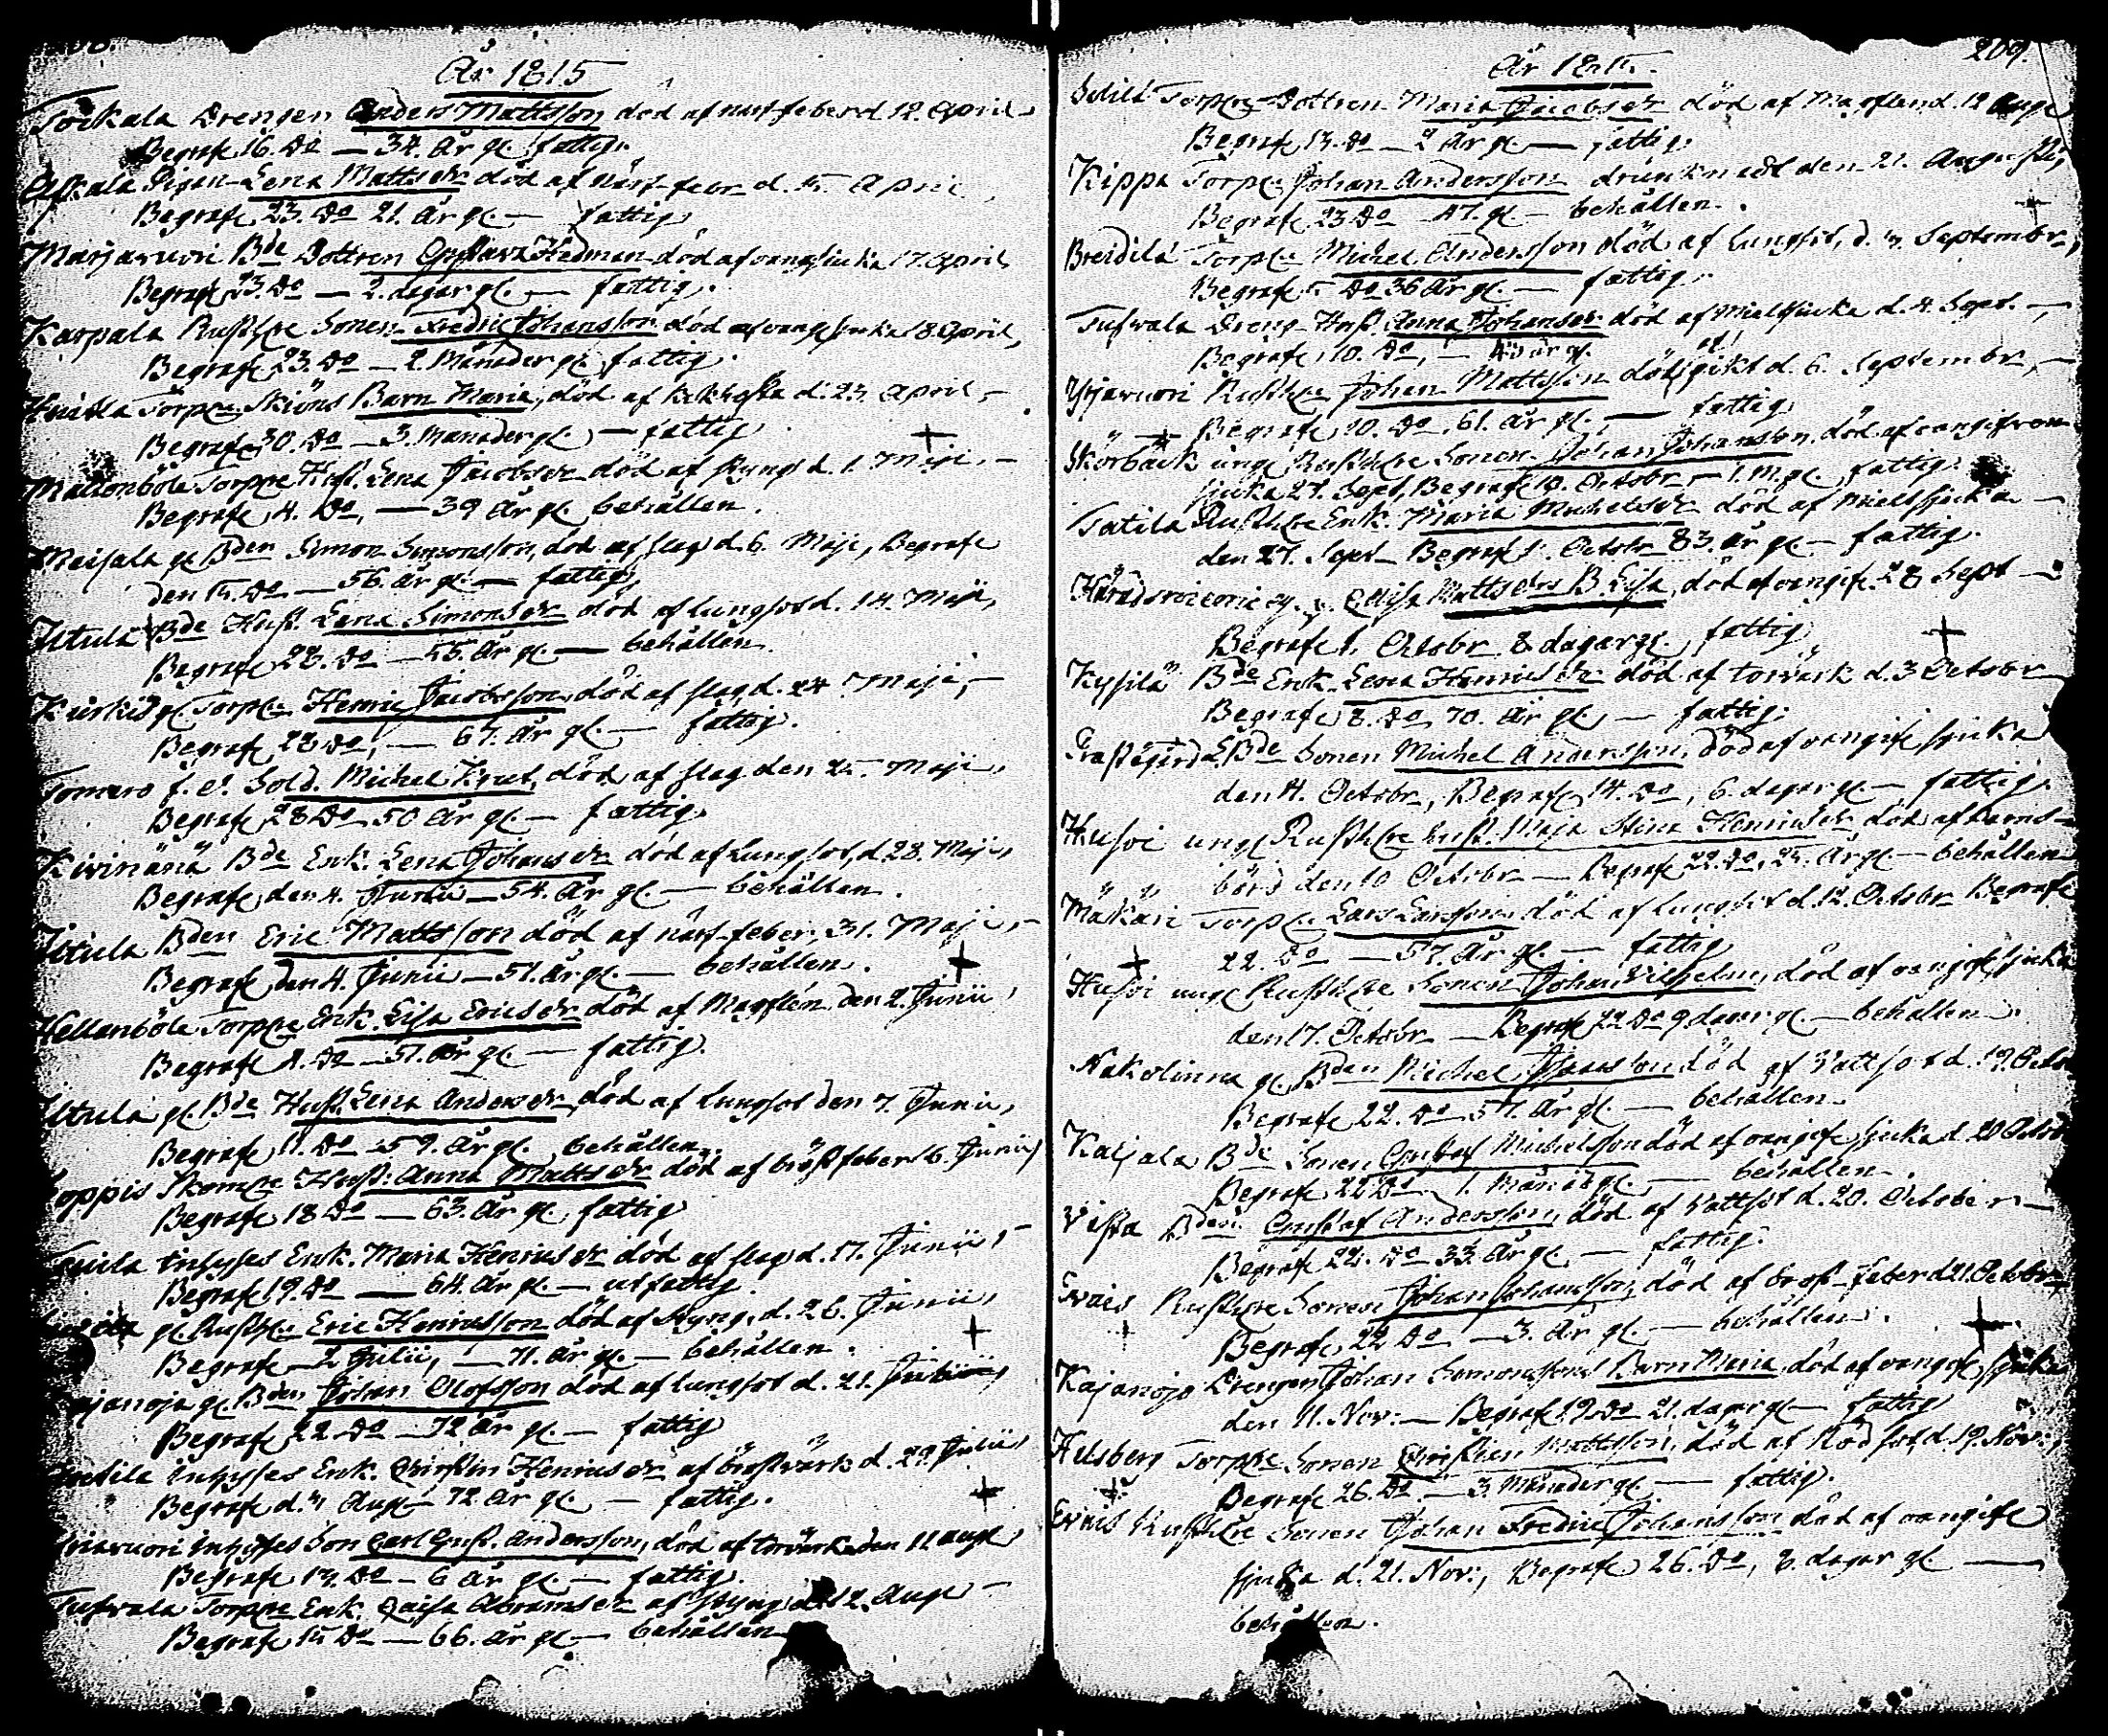 År 1815
Torkala Drengen Anders Mattsson död af närf-feber d. 12. April
Begrafs 16. Do — 34. år gl. fattig.
Pigan Lena Mattsdr död af närf-febr d. 15. April
Begrafs 23. Do 21. år gl. — fattig
Marjavuori Bde Dottren Gustava Hedman död af vang. siuka 17. April
Begrafs 23. Do — 2. dagar gl. — fattig.
Karpala Rusth. Sonen Fredric Johansson död af vang siuka 18. April,
Begrafs 23. Do — 2. Månader gl. fattig.
Torpns Skiöns Barn Maria, död af Kikhosta d. 23. April —
Begrafs 30. Do — 3. Månader gl. — fattig
Torpns Hust. Lena Jacobsdr död af styng d. 1. Maji, —
Begrafs 4. Do, — 39 år gl. behållen.
Meisala gl. Bden Simon Simonsson, död af slag d. 6. Maji, Begrafs
den 15. Do — 56. år gl. — fattig,
Ittula Bde Hust. Lena Simonsdr död af lungsot d. 14. Maji,
Begrafs 28. Do — 55. år gl. — behållen.
gl. Torp. Henric Jacobsson, död af slag d. 24. Maji, —
Begrafs 28 Do, — 67. år gl. — fattig.
f. d. Sold. Michel Krut, död af slag den 25. Maji,
Begrafs 28 Do 50 år gl. — fattig
Kivinänä Bde Enk. Lena Johansdr död af Lungsot, d. 28. Maji,
Begrafs den 4. Junii — 54. år gl. — behållen.
Ittula Bden Eric Mattsson död af närf-feber, 31. Maji, —
Begrafs den 4. Junii — 51. år gl. — behållen.
Hellenböle Torpns Enk. Lisa Ericsdr död af Magplån den 2. Junii,
Begrafs 4. Do — 51. år gl. — fattig.
Ittula gl. Bde Hust. Lena Andersdr död af lungsot den 7. Junii,
Begrafs 11. Do 59. år gl. behållen.
Hust. Anna Mattsdr död af bröstfeber 16. Junii
Begrafs 18 Do — 63. år gl. fattig
Inhyses Enk. Maria Henricsdr död af slag d. 17. Junii, —
Begrafs 19. Do — 64. år gl. — utfattig.
gl. Rusth. Eric Henricsson död af styng, d. 26. Junii,
Begrafs — 2 Julii, — 71. år gl. — behållen.
gl. Bden Johan Olofsson död af lungsot d. 21. Julii,
Begrafs 22 Do — 72 år gl. — fattig
Inhyses Enk. Christin Henricsdr af bröstvärk d. 29. Julii,
Begrafs d. Aug. — 72. år gl. — fattig.
Inhyses Son Carl Gust. Andersson, död af torrvärk den 11 Aug.
Begrafs 13. Do — 6 år gl. — fattig.
Tufvala Torpns Enk. Caisa Abramsdr af styng d. 12. Aug. —
Begrafs 15 Do — 66. år gl. — behållen
209.
År 1815.
Torpns Dottren Maria Jacobsdr död af Magplån d. 12 Aug.
Begrafs 13. Do — 2 år gl. — fattig.
Kippa Torp. Johan Andersson drunknadt den 21. Augusti,
Begrafs 23 Do — 47. gl. — behållen.
Breidilä Torp. Michel Andersson död af lungsot, d. 3. Septembr,
Begrafs 5 Do 36 år gl. — fattig.
Tufvala Dreng. Hust Anna Johansdr död af Mieltsiuka d. 4. Sept. —
Begrafs 10. Do, — år gl.
Yrjavuori Rusth. Johan Mattsson död af gikt d. 6. Septembr, —
Begrafs 10. Do, 61. år gl., — fattig
Skörbäck ungl Rusth. Sonen Johan Johansson, död af vangifven
siuka 27. Sept, Begrafs 10. Octobr — 1. M. gl. fattig.
Tatila Rusth. Enk. Maria Michelsdr död af Mieltsiuka —
den 27. Sept Begrafs 1. Octobr 83. år gl. — fattig.
Mattsdrs B. Lisa, död af vangifv. 28 Sept —
Begrafs 1. Octobr 8 dagar gl. fattig
Kysilä Bde Enk. Lena Henricsdr död af torrvärk d. 3 Octobr
Begrafs 8. Do, 70. år gl. — fattig.
Prästegårds LBde Sonen Michel Andersson, död af vangifv siuka
den 4. Octobr, Begrafs 14. Do, 6. dagar gl. — fattig.
Husoi ungl Rusth. Hust. Maja Stina Henricsdr död af barns-
börd den 10 Octobr — Begrafs 22. Do, 25. år gl. — behållen
Mäkäri Torp. Lars Larsson död af lungsot d. 12. Octobr Begrafs
22. Do — 57. år gl. — fattig
Husoi ungl Rusth. Sonen Johan Wilhelm, död af vangifv siuka
den 17. Octobr — Begrafs 22 Do 9 dagar gl. — behållen.
Nakolinna gl. Bden Michel Isacsson död af Vattsot d. 19. Octobr
Begrafs 22. Do 57. år gl. — behållen
Kaljala Bde Sonen Gustaf Michelsson död af vangifv siuka d. 20 Octobr
Begrafs 22 Do 1. Månad gl. — behållen.
Vista Bden Gustaf Andersson, död af Vattsot d. 20. October —
Begrafs 22. Do 33. år gl. — fattig.
Evais Rusth. Sonen Johan Johansson, död af bröst-feber d 21. Octobr
Begrafs 22 Do — 3. år gl. — behållen.
Kajanojo Drengen Johan Simonssons Barn Maria, död af vangifv siuka
den 11. Nov: — Begrafs 19. Do 21. dagar gl. — fattig
Hulsberg Torpns Sonen Christian Mattsson, död af Rödsot, d. 19. Nov:,
Begrafs 26. Do — 3. Månader gl. — fattig.
Evais Rusth. Sonen Johan Fredric Johansson död af vangifv
siuka d. 21. Nov:, Begrafs 26. Do, 8. dagar gl —
behållen.